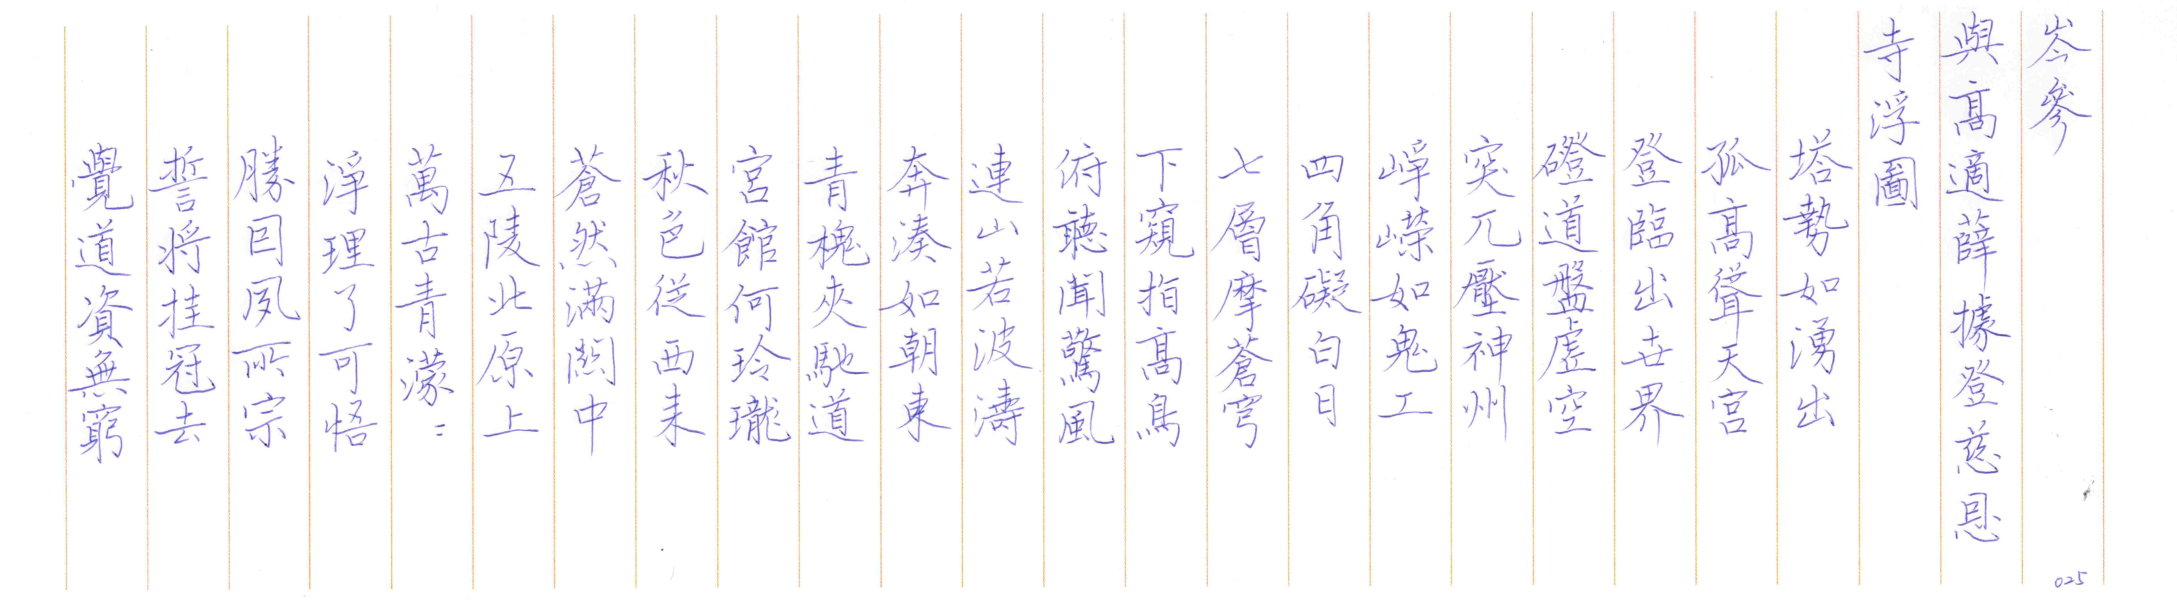 岑參
與高適薛據登慈恩
寺浮圖
塔勢如湧出
孤高聳天宮
登臨出世界
磴道盤虛空
突兀壓神州
崢嶸如鬼工
四角礙白日
七層摩蒼穹
下窺指高鳥
俯聽聞驚風
連山若波濤
奔湊如朝東
青槐夾馳道
宮館何玲瓏
秋色從西來
蒼然滿關中
五陵北原上
萬古青濛〻
淨理了可悟
勝因夙所宗
誓將挂冠去
覺道資無窮
025